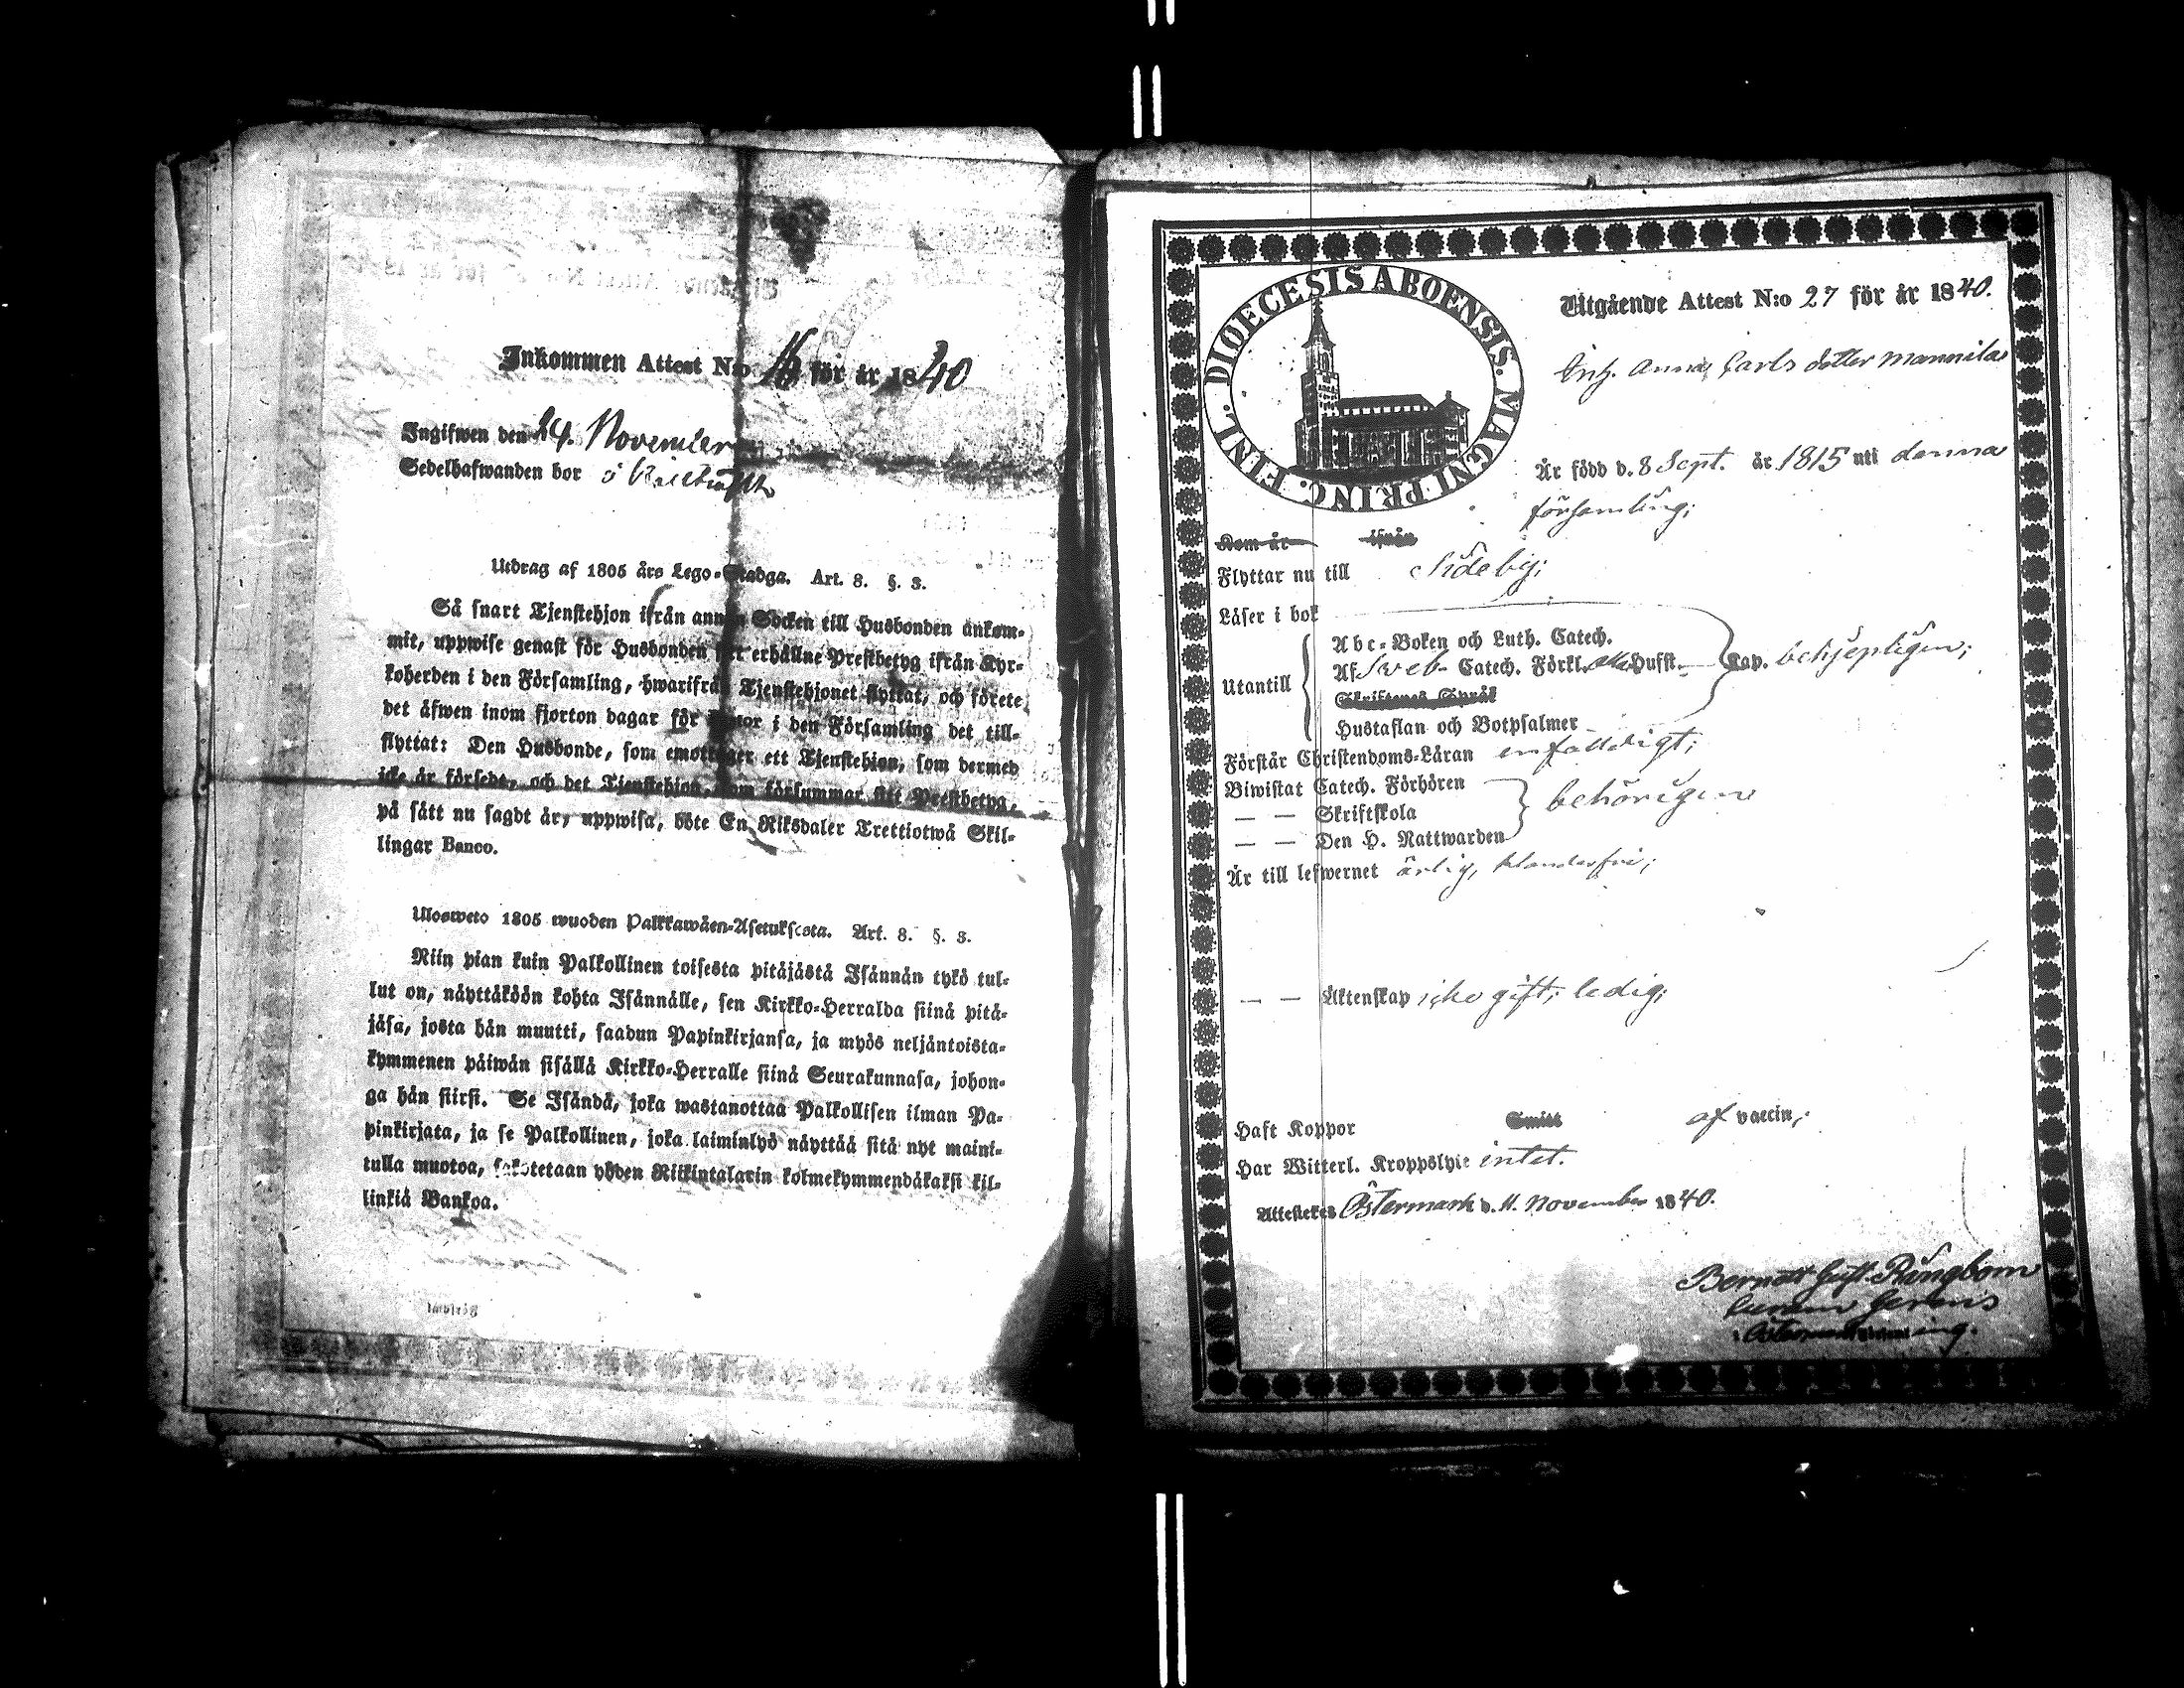 Inkommen Attest N:o 16 för år 1840
Ingifwen den 24. November
Sedelhafwanden bor i
Utdrag af 1805 års Lego-Stadga. Art. 8. §. 3.
Så snart Tjenstehjon ifrån annan Socken till Husbonden ankom-
mit, uppwise genast för Husbonden sitt erhållne Prestbetyg ifrån Kyr-
koherden i den Församling, hwarifrån Tjenstehjonet flyttat, och förete
det äfwen inom fjorton dagar för Pastor i den Församling det till-
flyttat: Den Husbonde, som emottager ett Tjenstehjon, som dermed
icke är försedt, och det Tjenstehjon, som försummar sitt Prestbetyg,
på sätt nu sagdt är, uppwisa, böte En Riksdaler Trettiotwå Skil-
lingar Banco.
Ulosweto 1805 wuoden Palkkawäen-Asetuksesta. Art. 8. §. 3.
Niin pian kuin Palkollinen toisesta pitäjästä Isännän tykö tul-
lut on, näyttäköön kohta Isännälle, sen Kirkko-Herralda siinä pitä-
jäsä, josta hän muutti, saadun Papinkirjansa, ja myös neljäntoista-
kymmenen päiwän sisällä Kirkko-Herralle siinä Seurakunnasa, johon-
ga hän siirsi. Se Isändä, joka wastanottaa Palkollisen ilman Pa-
pinkirjata, ja se Palkollinen, joka laiminlyö näyttää sitä nyt maini-
tulla muotoa, sakotetaan yhden Riikintalarin kolmekymmendäkaksi kil-
linkiä Bankoa.
DIOECESIS ABOENSIS. MAGNI PRINC. FINL.
Utgående Attest N:o 27 för år 1840.
Anna Carls dotter Mannila
Är född d. 8 Sept. år 1815 uti denna
församling;
Kom år ifrån
Flyttar nu till Sideby;
Läser i bok
Abc-Boken och Luth. Catech.
Utantill Af Sveb. Catech. Förkl. Husst. Cap. behjepligen;
Skriftenes Språk
Hustaflan och Botpsalmer
Förstår Christendoms-Läran enfaldigt;
Biwistat Catech. Förhören
— — Skriftskola behörigen
— — Den H. Nattwarden
Är till lefwernet ärlig, klanderfri;
— — Äktenskap icke gift; ledig;
Haft Koppor Smitt af vaccin;
Har Witterl. Kroppslyte intet.
Attesteres Östermark d. 11. November 1840.
Bernatt Gust. Rångbom